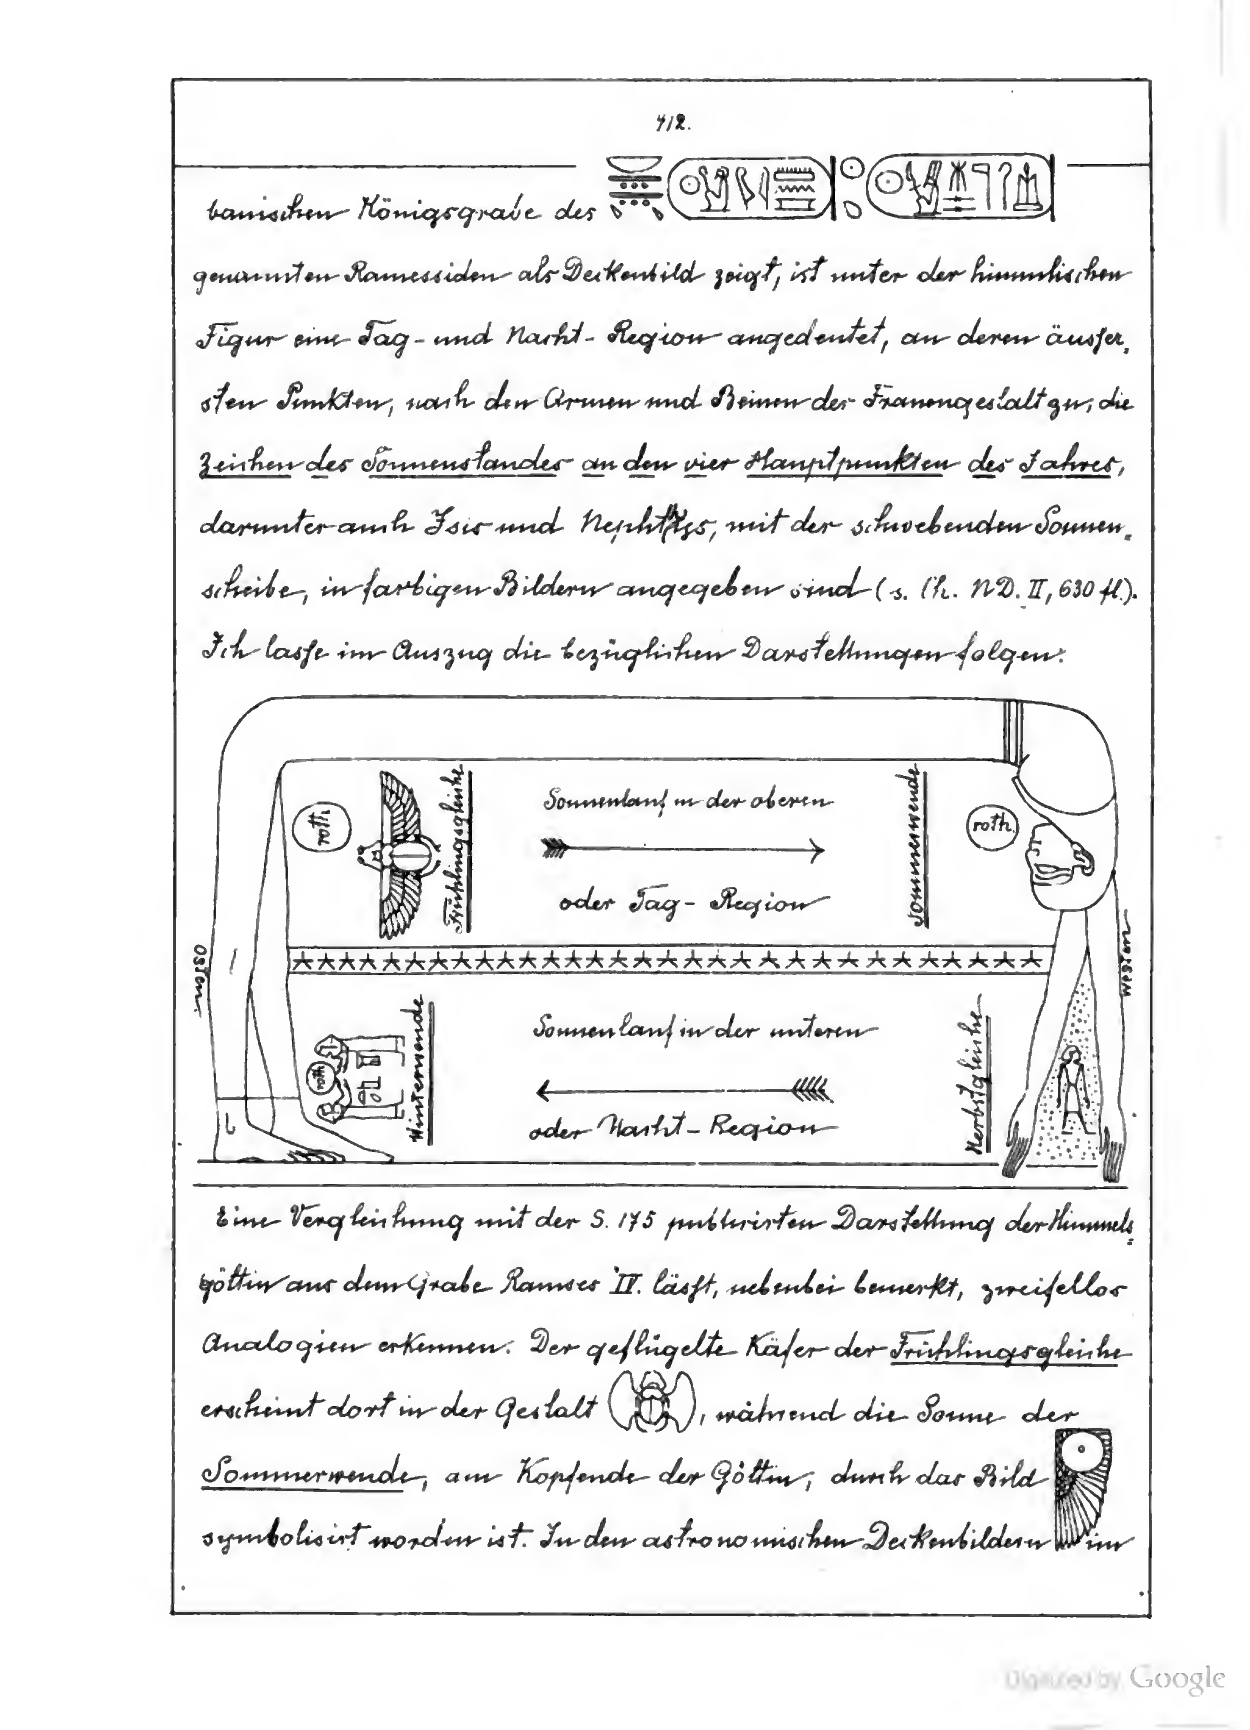 412.
banischen Königsgrabe des
genannten Ramessiden als Deckenbild zeigt, ist unter der himmlischen
Figur eine Tag- und Nacht-Region angedeutet, an deren äusser„
sten Punkten, nach den Armen und Beinen der Frauengestalt zu, die
Zeichen des Sonnenstandes an den vier Hauptpunkten des Jahres,
darunter auch Isis und Nephthys, mit der schwebenden Sonnen„
scheibe, in farbigen Bildern angegeben sind (s. Ch. ND. II, 630 fl.).
Ich lasse im Auszug die bezüglichen Darstellungen folgen:
roth.
Frühlingsgleiche
Sonnenlauf in der oberen
oder Tag-Region
Sommerwende
roth.
Osten.
Westen
roth
Winterwende
Sonnenlauf in der unteren
oder Nacht-Region
Herbstgleiche
Eine Vergleichung mit der S. 175 publicirten Darstellung der Himmels„
göttin aus dem Grabe Ramses IV. lässt, nebenbei bemerkt, zweifellos
Analogien erkennen. Der geflügelte Käfer der Frühlingsgleiche
erscheint dort in der Gestalt ( ), während die Sonne der
Sommerwende, am Kopfende der Göttin, durch das Bild
symbolisirt worden ist. In den astronomischen Deckenbildern im
Digitized by Google